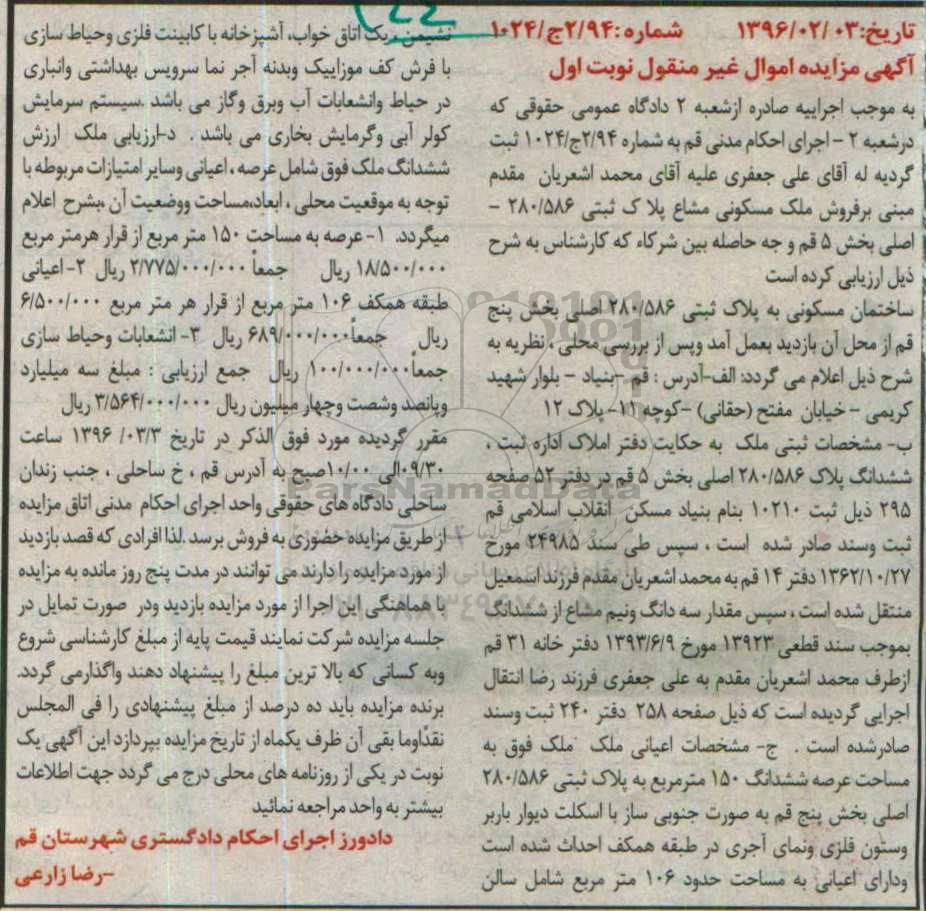 تاریخ:۱۳۹۶/۰۲/۰۳ شماره:۲/۹۴ج/۱۰۲۴
آگهی مزایده اموال غیر منقول نوبت اول
به موجب اجراییه صادره ازشعبه ۲ دادگاه عمومی حقوقی که
درشعبه ۲ - اجرای احکام مدنی قم به شماره ۲/۹۴ج/۱۰۲۴ ثبت
گردیه له آقای علی جعفری علیه آقای محمد اشعریان مقدم
مبنی برفروش ملک مسکونی مشاع پلا ک ثبتی ۲۸۰/۵۸۶ -
اصلی بخش ۵ قم و جه حاصله بین شرکاء که کارشناس به شرح
ذیل ارزیابی کرده است
ساختمان مسکونی به پلاک ثبتی ۲۸۰/۵۸۶ اصلی بخش پنج
قم از محل آن بازدید بعمل آمد وپس از بررسی محلی ، نظریه به
شرح ذیل اعلام می گردد: الف-آدرس : قم -بنیاد - بلوار شهید
کریمی - خیابان مفتح (حقانی) -کوچه ۱۱- پلاک ۱۲
ب- مشخصات ثبتی ملک به حکایت دفتر املاک اداره ثبت ،
ششدانگ پلاک ۲۸۰/۵۸۶ اصلی بخش ۵ قم در دفتر ۵۲ صفحه
۲۹۵ ذیل ثبت ۱۰۲۱۰ بنام بنیاد مسکن انقلاب اسلامی قم
ثبت وسند صادر شده است ، سپس طی سند ۲۴۹۸۵ مورخ
۱۳۶۲/۱۰/۲۷ دفتر ۱۴ قم به محمد اشعریان مقدم فرزند اسمعیل
منتقل شده است ، سپس مقدار سه دانگ ونیم مشاع از ششدانگ
بموجب سند قطعی ۱۳۹۲۳ مورخ ۱۳۹۳/۶/۹ دفتر خانه ۳۱ قم
ازطرف محمد اشعریان مقدم به علی جعفری فرزند رضا انتقال
اجرایی گردیده است که ذیل صفحه ۲۵۸ دفتر ۲۴۰ ثبت وسند
صادرشده است . ج- مشخصات اعیانی ملک ملک فوق به
مساحت عرصه ششدانگ ۱۵۰ مترمربع به پلاک ثبتی ۲۸۰/۵۸۶
اصلی بخش پنج قم به صورت جنوبی ساز با اسکلت دیوار باربر
وستون فلزی ونمای آجری در طبقه همکف احداث شده است
ودارای اعیانی به مساحت حدود ۱۰۶ متر مربع شامل سالن
نشیمن ، یک اتاق خواب، آشپزخانه با کابینت فلزی وحیاط سازی
با فرش کف موزاییک وبدنه آجر نما سرویس بهداشتی وانباری
در حیاط وانشعابات آب وبرق وگاز می باشد .سیستم سرمایش
کولر آبی وگرمایش بخاری می باشد . د-ارزیابی ملک ارزش
ششدانگ ملک فوق شامل عرصه ، اعیانی وسایر امتیازات مربوطه با
توجه به موقعیت محلی ، ابعاد،مساحت ووضعیت آن ،بشرح اعلام
میگردد. ۱- عرصه به مساحت ۱۵۰ متر مربع از قرار هرمتر مربع
۱۸/۵۰۰/۰۰۰ ریال جمعاً ۲/۷۷۵/۰۰۰/۰۰۰ ریال ۲- اعیانی
طبقه همکف ۱۰۶ متر مربع از قرار هر متر مربع ۶/۵۰۰/۰۰۰
ریال جمعاً۶۸۹/۰۰۰/۰۰۰ ریال ۳- انشعابات وحیاط سازی
جمعاً۱۰۰/۰۰۰/۰۰۰ ریال جمع ارزیابی : مبلغ سه میلیارد
وپانصد وشصت وچهار میلیون ریال ۳/۵۶۴/۰۰۰/۰۰۰ ریال
مقرر گردیده مورد فوق الذکر در تاریخ ۱۳۹۶ /۰۳/۳ ساعت
۰۹/۳۰الی ۱۰/۰۰صبح به آدرس قم ، خ ساحلی ، جنب زندان
ساحلی دادگاه های حقوقی واحد اجرای احکام مدنی اتاق مزایده
از طریق مزایده حضوری به فروش برسد .لذا افرادی که قصد بازدید
از مورد مزایده را دارند می توانند در مدت پنج روز مانده به مزایده
با هماهنگی این اجرا از مورد مزایده بازدید ودر صورت تمایل در
جلسه مزایده شرکت نمایند قیمت پایه از مبلغ کارشناسی شروع
وبه کسانی که بالا ترین مبلغ را پیشنهاد دهند واگذارمی گردد.
برنده مزایده باید ده درصد از مبلغ پیشنهادی را فی المجلس
نقدًاوما بقی آن ظرف یکماه از تاریخ مزایده بپردازد این آگهی یک
نوبت در یکی از روزنامه های محلی درج می گردد جهت اطلاعات
بیشتر به واحد مراجعه نمائید
دادورز اجرای احکام دادگستری شهرستان قم
-رضا زارعی
ParsNamadData